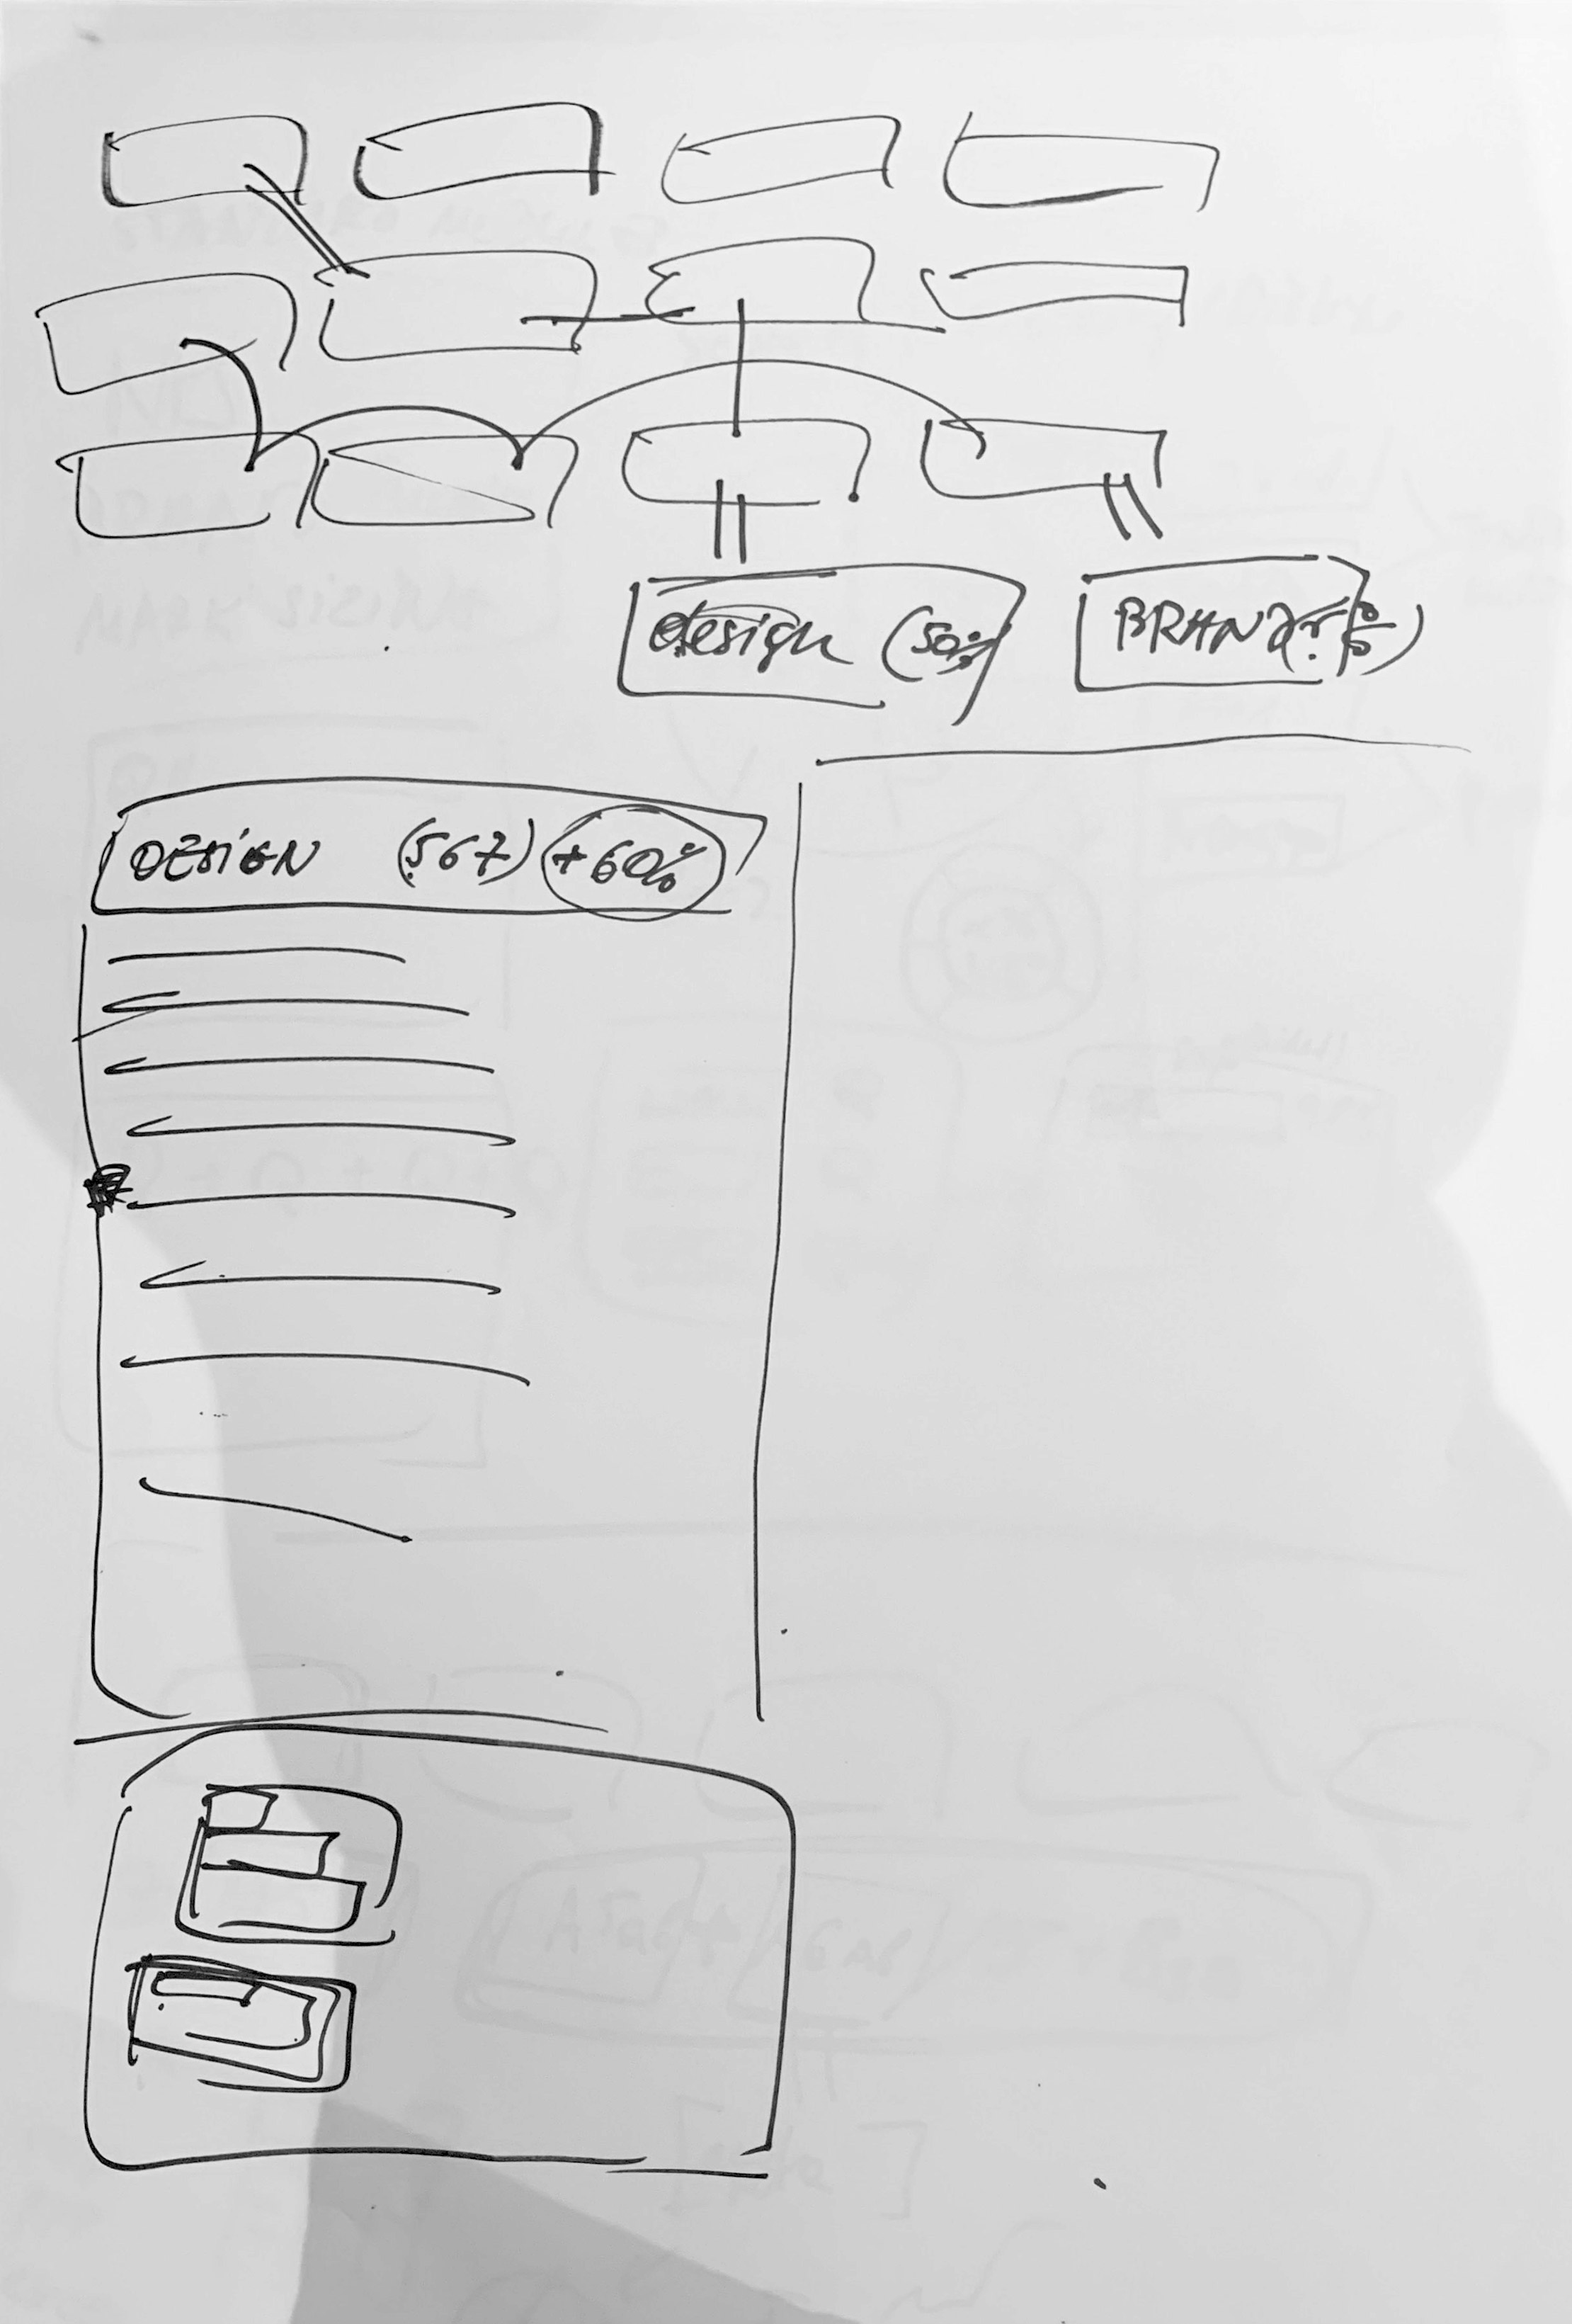 design (50%)
BRAND
DESiGN (567) +60%